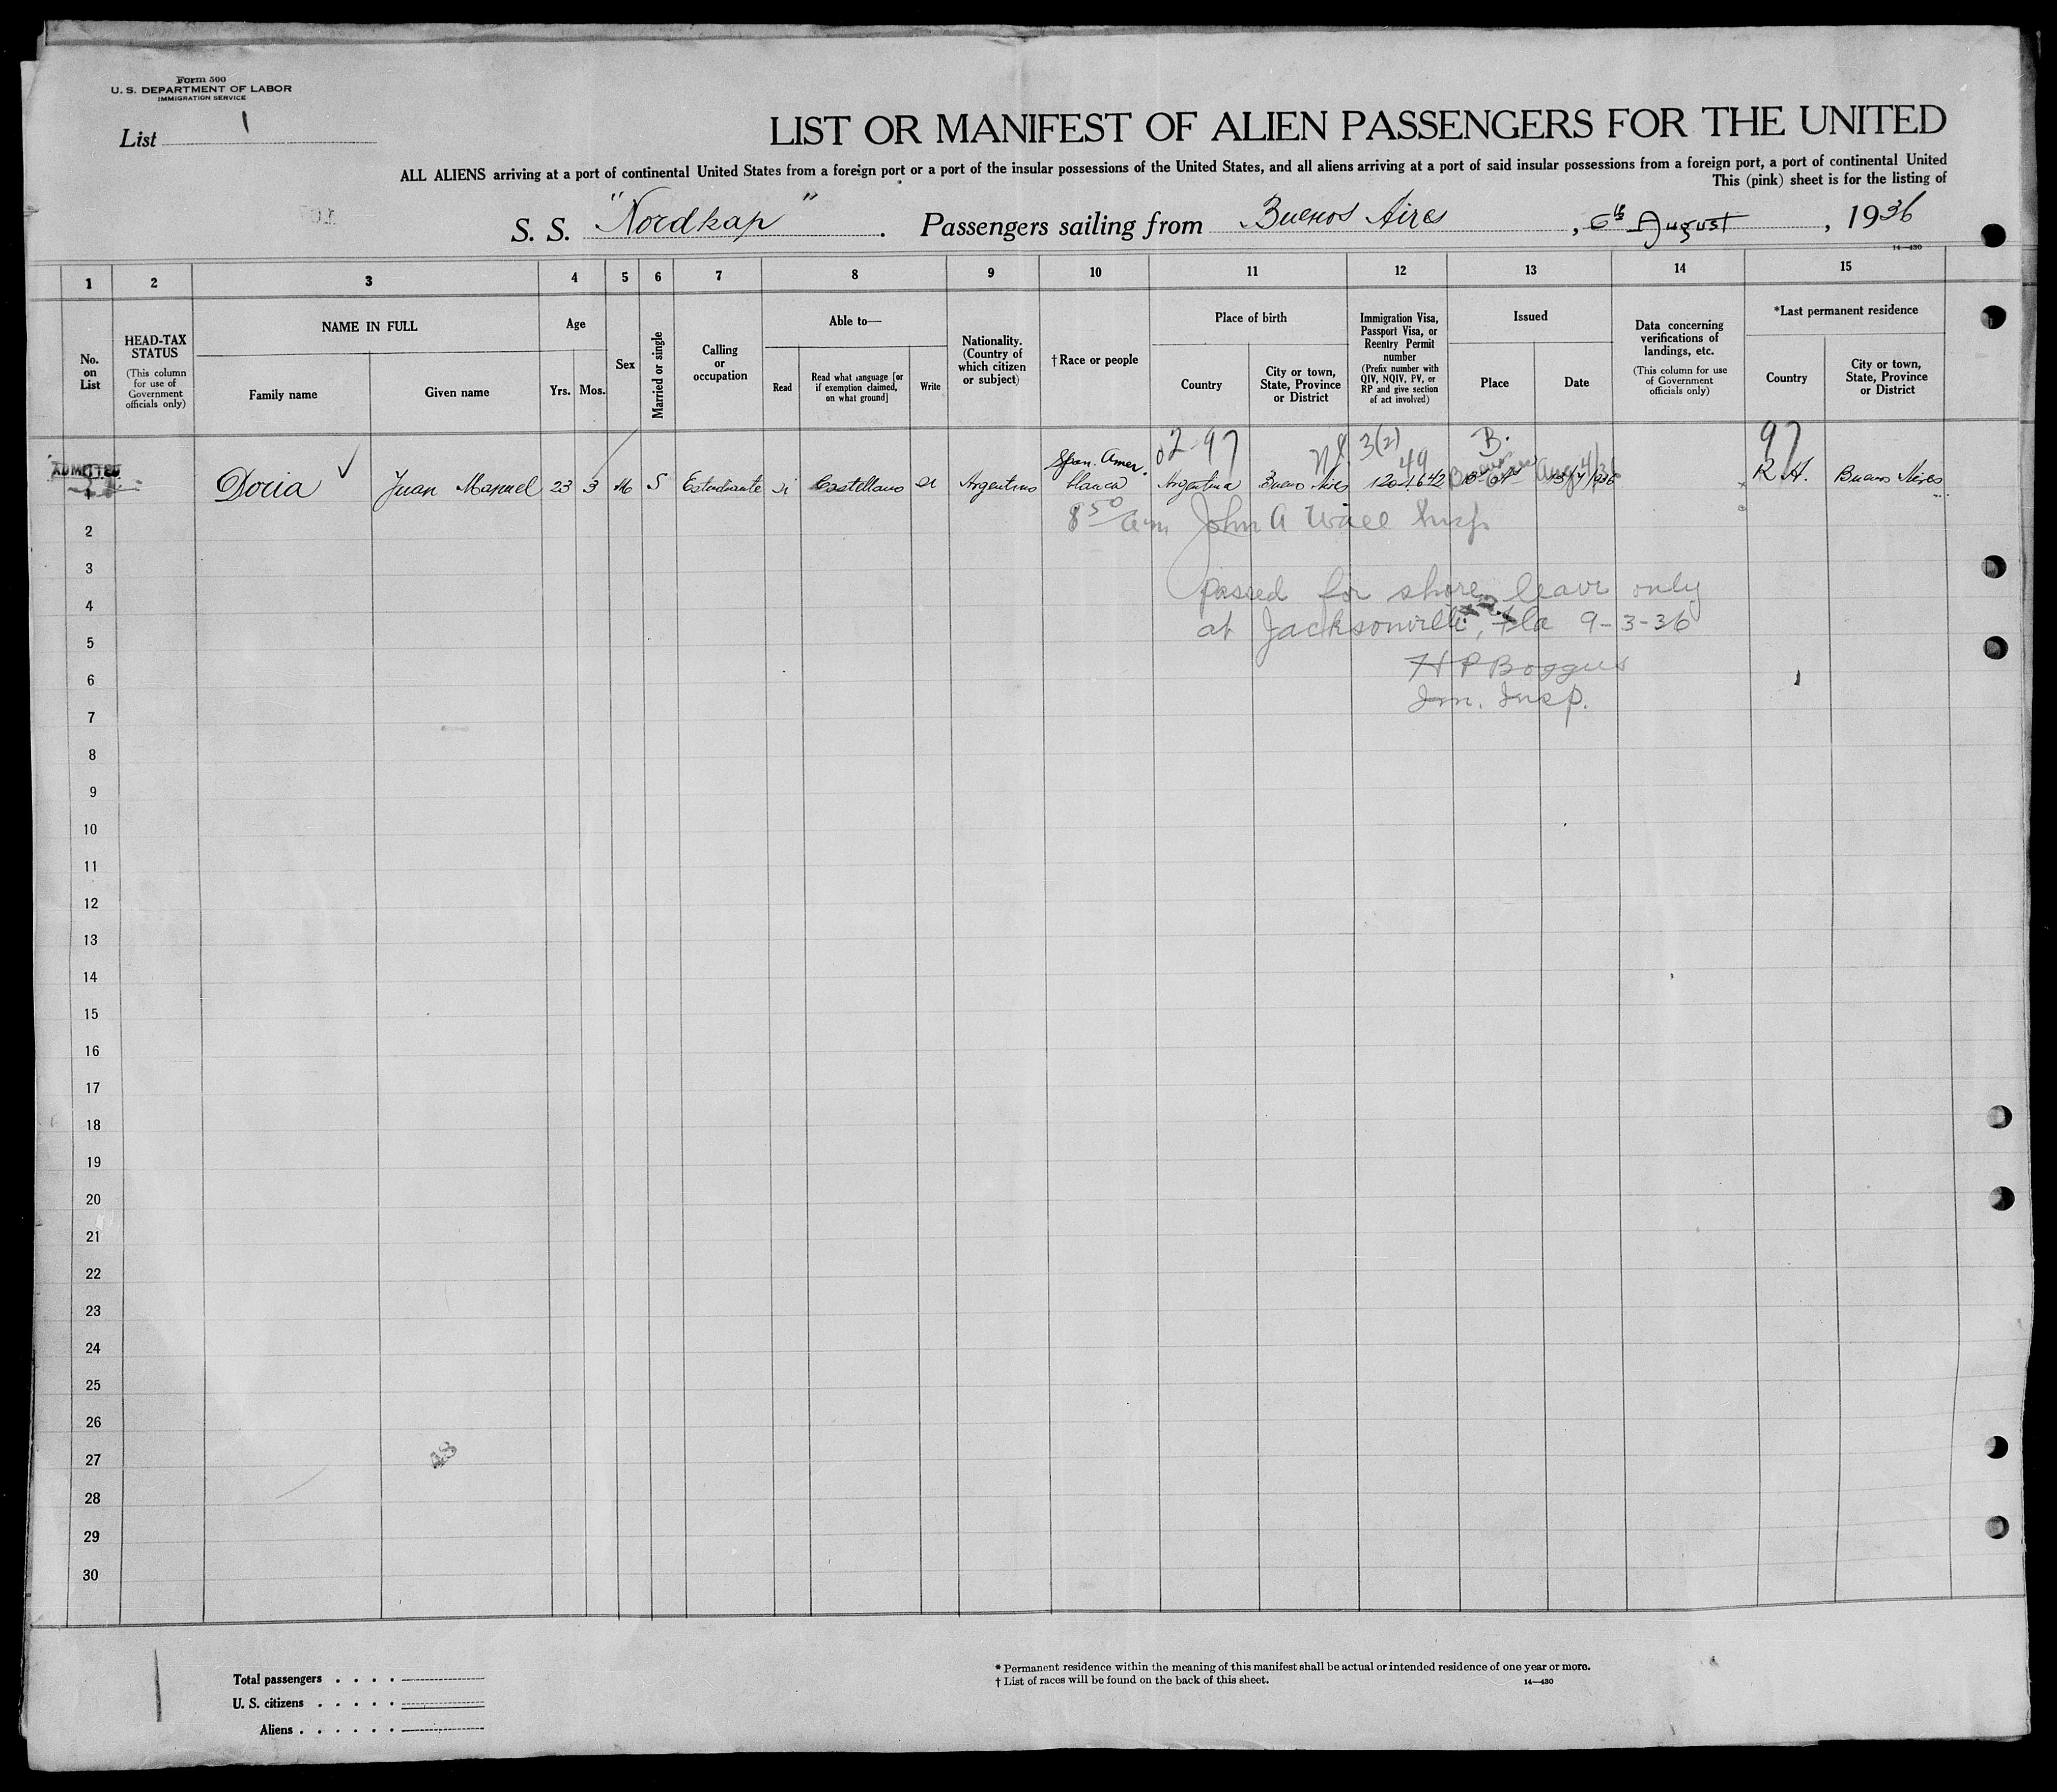 Form 500
U. S. DEPARTMENT OF LABOR
IMMIGRATION SERVICE
List 1
LIST OR MANIFEST OF ALIEN PASSENGERS FOR THE UNITED
ALL ALIENS arriving at a port of continental United States from a foreign port or a port of the insular possessions of the United States, and all aliens arriving at a port of said insular possessions from a foreign port, a port of continental United
This (pink) sheet is for the listing of
S. S. "Nordkap". Passengers sailing from Buenos Aires, 6th August, 1936
14—430
1 2 3 4 5 6 7 8 9 10 11 12 13 14 15
No. on List
HEAD-TAX STATUS
(This column for use of Government officials only)
NAME IN FULL
Family name
Given name
Age
Yrs.
Mos.
Sex
Married or single
Calling or occupation
Able to—
Read
Read what language [or if exemption claimed, on what ground]
Write
Nationality. (Country of which citizen or subject)
†Race or people
Place of birth
Country
City or town, State, Province or District
Immigration Visa, Passport Visa, or Reentry Permit number
(Prefix number with QIV, NQIV, PV, or RP and give section of act involved)
Issued
Place
Date
Data concerning verifications of landings, etc.
(This column for use of Government officials only)
*Last permanent residence
Country
City or town, State, Province or District
02-97 3(2) B. 97
49
Span. Amer.
ADMITTED
1 Doria Juan Manuel 23 3 M S Estudiante si Castellano si Argentino blanca Argentina Buenos Aires R. A. Buenos Aires
2 8 50 am John A Wall Insp
3
4 passed for shore leave only
5 at Jacksonville, Fla 9-3-36
6 H P Boggus
7 Im. Insp.
8
9
10
11
12
13
14
15
16
17
18
19
20
21
22
23
24
25
26
27
28
29
30
Total passengers . . . .
U. S. citizens . . . . .
Aliens . . . . . .
* Permanent residence within the meaning of this manifest shall be actual or intended residence of one year or more.
† List of races will be found on the back of this sheet.
14—430